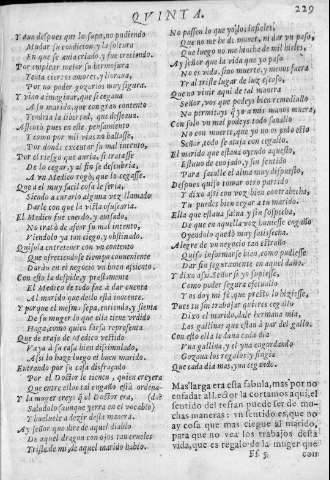 QVINTA.
229
Y aun despues que lo supo, no pudiendo
Mudar su condicion, y la soltura
En que se auia criado, y fue creciendo.
Por emplear mejor su hermosura
Tenia ciertos amores, y lloraua,
Por no poder gozarlos muy segura.
Y vino a imaginar, que si cegaua
A su marido, que con gran contento
Tendria la libertad, que desseaua.
Assentò pues en este pensamiento
Y como por mil vias no hallasse,
Por donde executar su mal intento,
Por el riesgo que auria, si tratasse
De lo cegar, y al fin se descubria,
A vn Medico rogò, que lo cegasse.
Que a el muy facil cosa le seria,
Siendo a curarlo alguna vez llamado
Darle con que la vista
El Medico fue cuerdo, y auisado,
No tratò de afear su mal intento,
Viendola ya tan ciego, y obstinado.
Quisola entretener con vn contento
Que ofreciendose tiempo conueniente
Darà en el negocio vn buen assiento.
Con esto la despide, y prestamente
El Medico de todo fue à dar cuenta
Al marido que desto està inocente.
Y porque el mesmo sepa, entienda, y sienta
De su muger lo que ella tiene vrdido
Haga, como quien farsa representa
Que de trato de zelos vestido
Vaya à su casa bien dissimulado,
Assi lo haze luego el buen marido.
Entrando por su casa disfraçado
Por el Doctor le tienen, quien creyera
Que entre ellos tal engaño està ordenado
Y la muger creyò q̃ el Doctor era,
Saludolo (aunque yerra en el vocablo)
Y bueluele a dezir desta manera.
Ay señor que dire de aquel diablo
De aquel dragon con ojos tan crueles
Triste de mi, de aquel marido hablo.
No passen lo que yo los infieles,
Que no me he de mouer, ni dar vn passo,
Que luego no me hinche de mil hieles.
Ay señor que la vida que yo passo
No es vida, sino muerte, y menos fuera
Que no vine aqui de tal manera
Señor, vos que podeys hazer
No permitays q̃ yo a mis manos muera,
Con solo vn mal podeys todo sanallo
No con muerte, que yo no os pido esto
Señor, todo se ataja con cegallo.
El marido que estaua oyendo aquesto,
Estuuo de enojado, y sin sentido
Para facalle el alma muy dispuesto,
Despues quiso tomar otro partido
Y dixo assi con voz bien contrahecha,
Tu puedes bien cegar a tu marido.
Ella que estaua sana y sin sospecha,
De que en aquella voz huuiesse engaño
Oyendolo quedò muy satisfecha.
Alegre de vn negocio tan estraño
Quiso informarse bien, como pudiesse
Dar sin seguramente en aquel daño.
Y dixo assi Señor si yo supiesse,
Como poder segura efetuallo
Y os doy mi fè, que presto lo hiziesse,
Pues tu sin trabajar quieres cegallo
Dixo el marido, dale hermana mia,
Las gallinas que estan à par del gallo.
Con esto ella le daua cada dia
Vna gallina, y el yua engordando
Gozaua los regalos, y fingia
Que cada dia mas, yua cegando.
Mas larga era esta fabula, mas por no
enfadar al Lector la cortamos aqui, el
sentido del resran puede ser de mu-
chas maneras: vn sentido es, que no
ay cosa que mas ciegue al marido,
para que no vea los trabajos desta
vida, que es regalo de la muger que
Ff 5
con